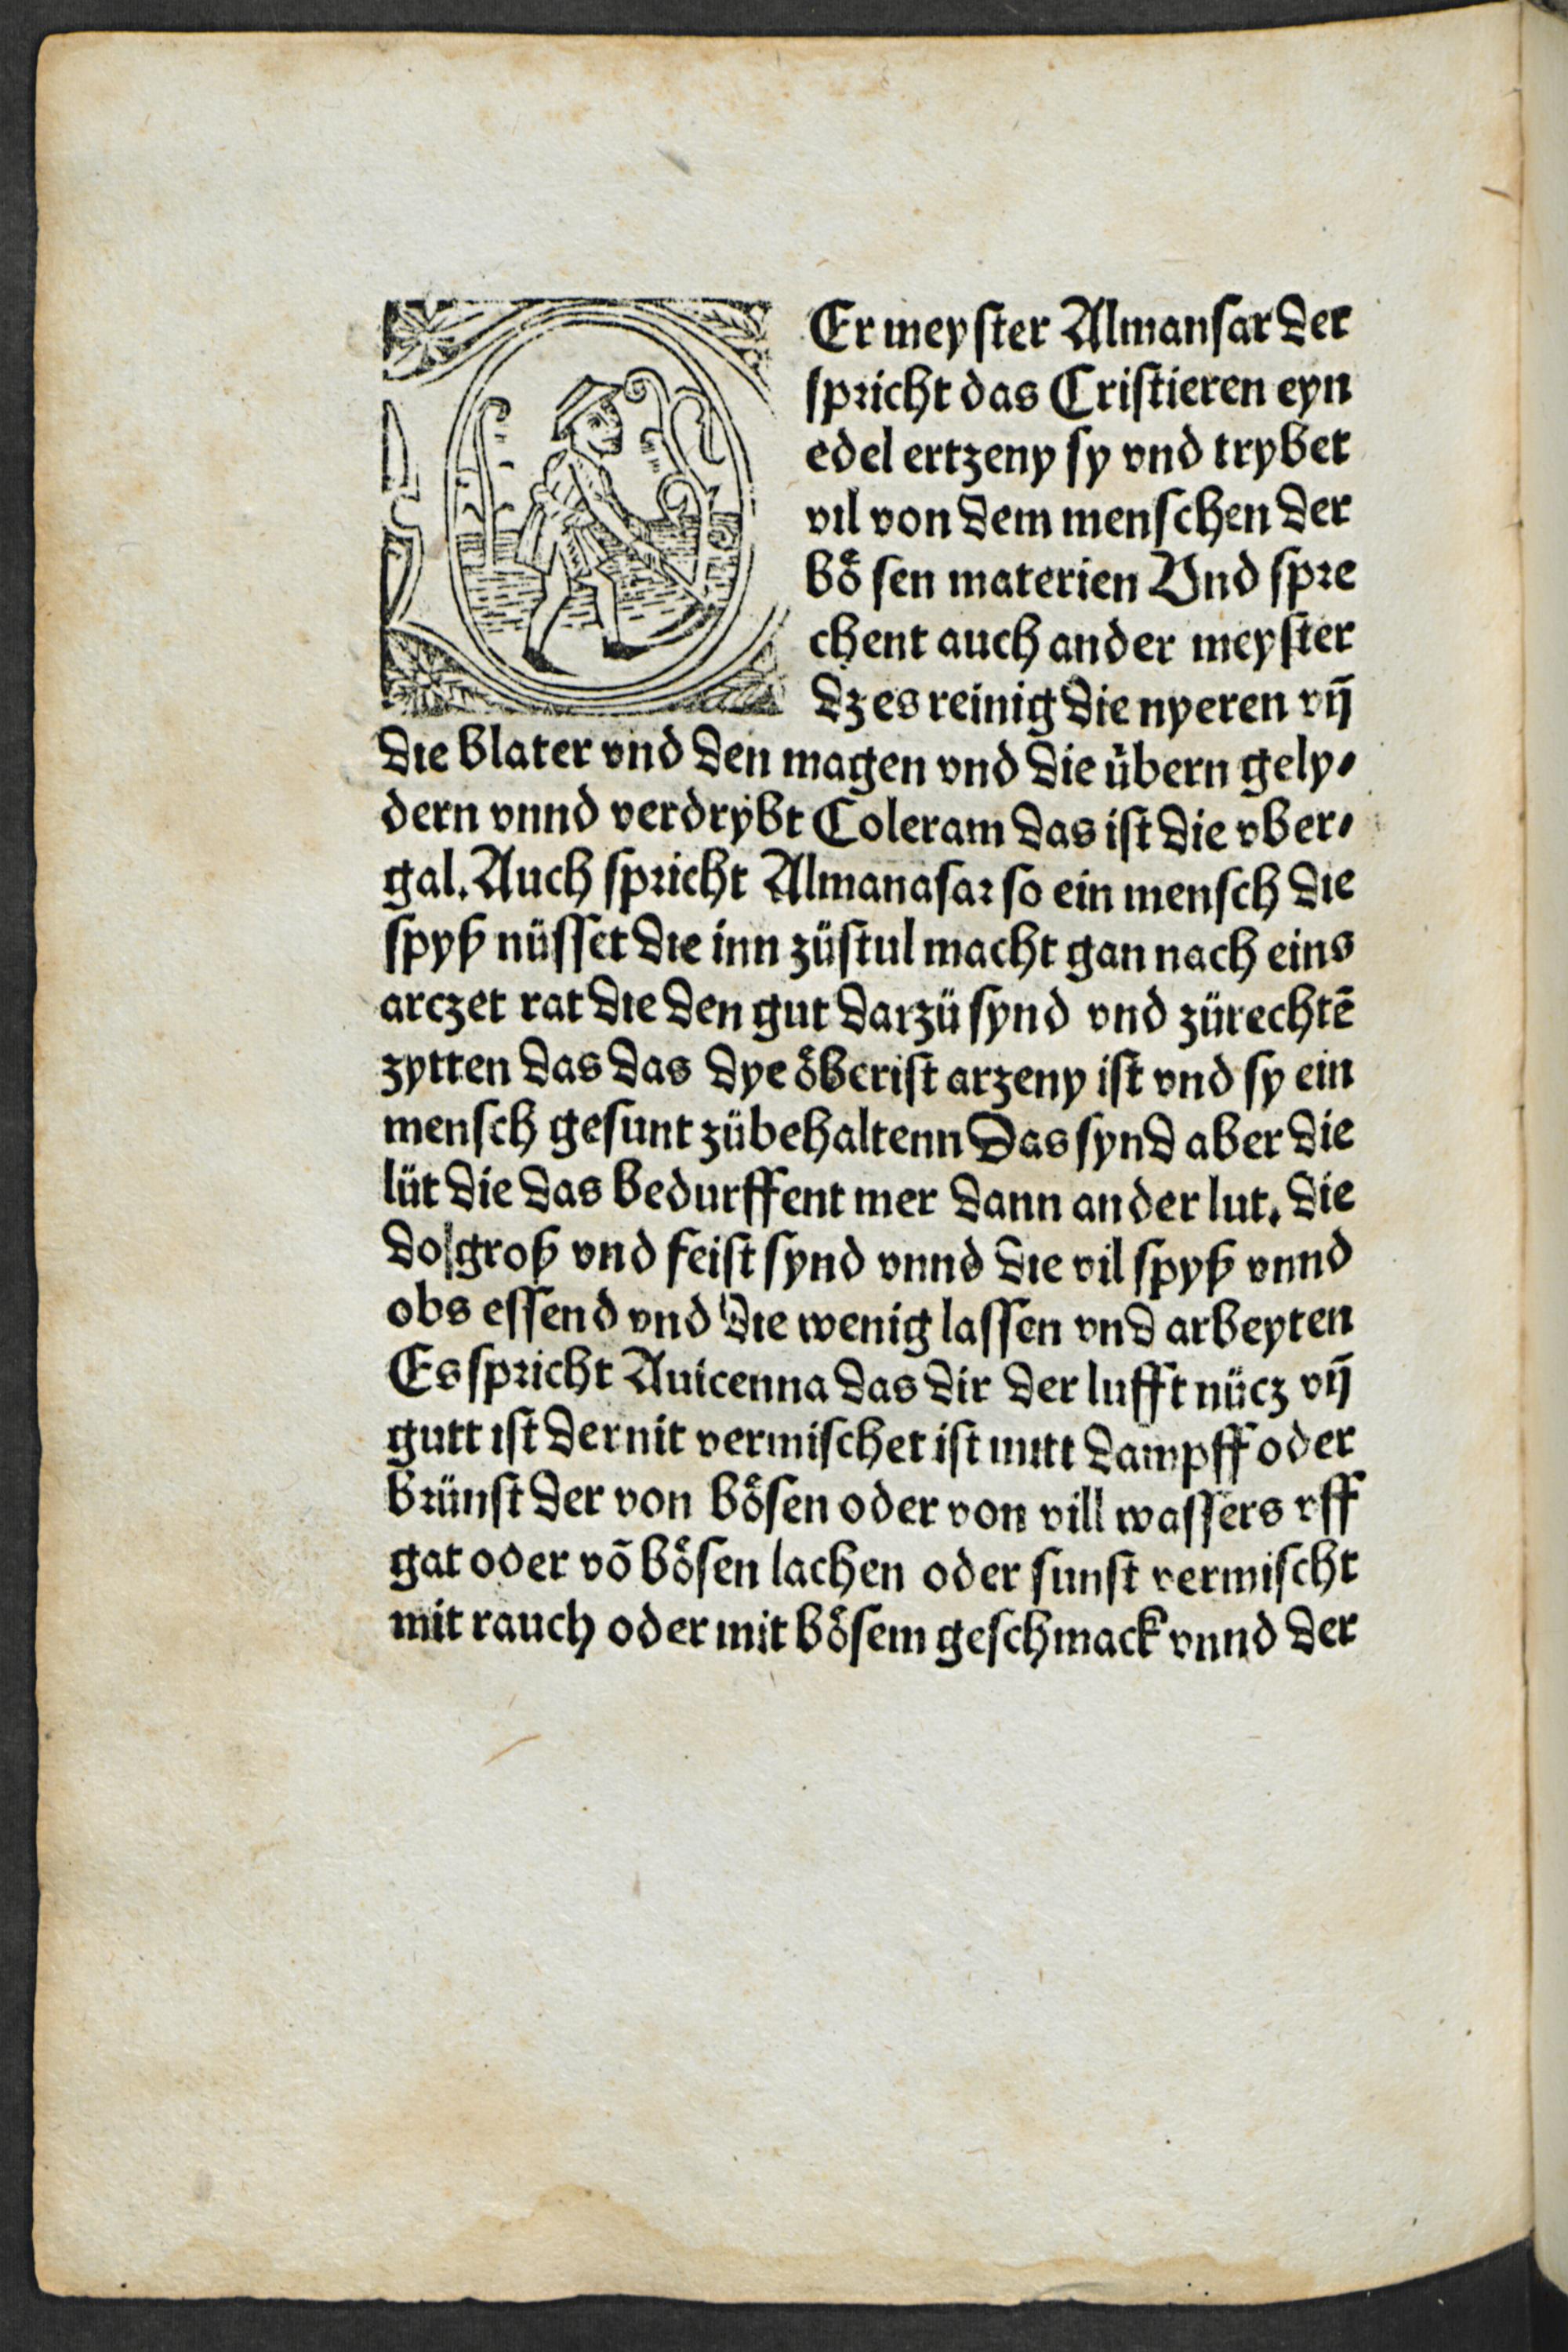 Er meyſter Almanſar der
ſpricht das Criſtieren eyn
edel ertzeny ſy vnd trybet
vil von dem menſchen der
boͤſen materien Vnd ſpre
chent auch ander meyſter
dz es reinig die nyeren vñ
die blater vnd den magen vnd die übern gely⸗
dern vnnd verdrybt Coleram das iſt die vber⸗
gal. Auch ſpricht Almanaſar ſo ein menſch die
ſpyß nüſſet die inn züſtul macht gan nach eins
arczet rat die den gut darzü ſynd vnd zürechtē
zytten das das dye oͤberiſt arzeny iſt vnd ſy ein
menſch geſunt zübehaltenn Das ſynd aber die
lüt die das bedurffent mer dann ander lut. die
do groß vnd feiſt ſynd vnnd die vil ſpyß vnnd
obs eſſend vnd die wenig laſſen vnd arbeyten
Es ſpricht Auicenna das dir der lufft nücz vñ
gutt iſt der nit vermiſchet iſt mitt dampff oder
brünſt der von boͤſen oder von vill waſſers vff
gat oder võ boͤſen lachen oder ſunſt vermiſcht
mit rauch oder mit boͤſem geſchmack vnnd der